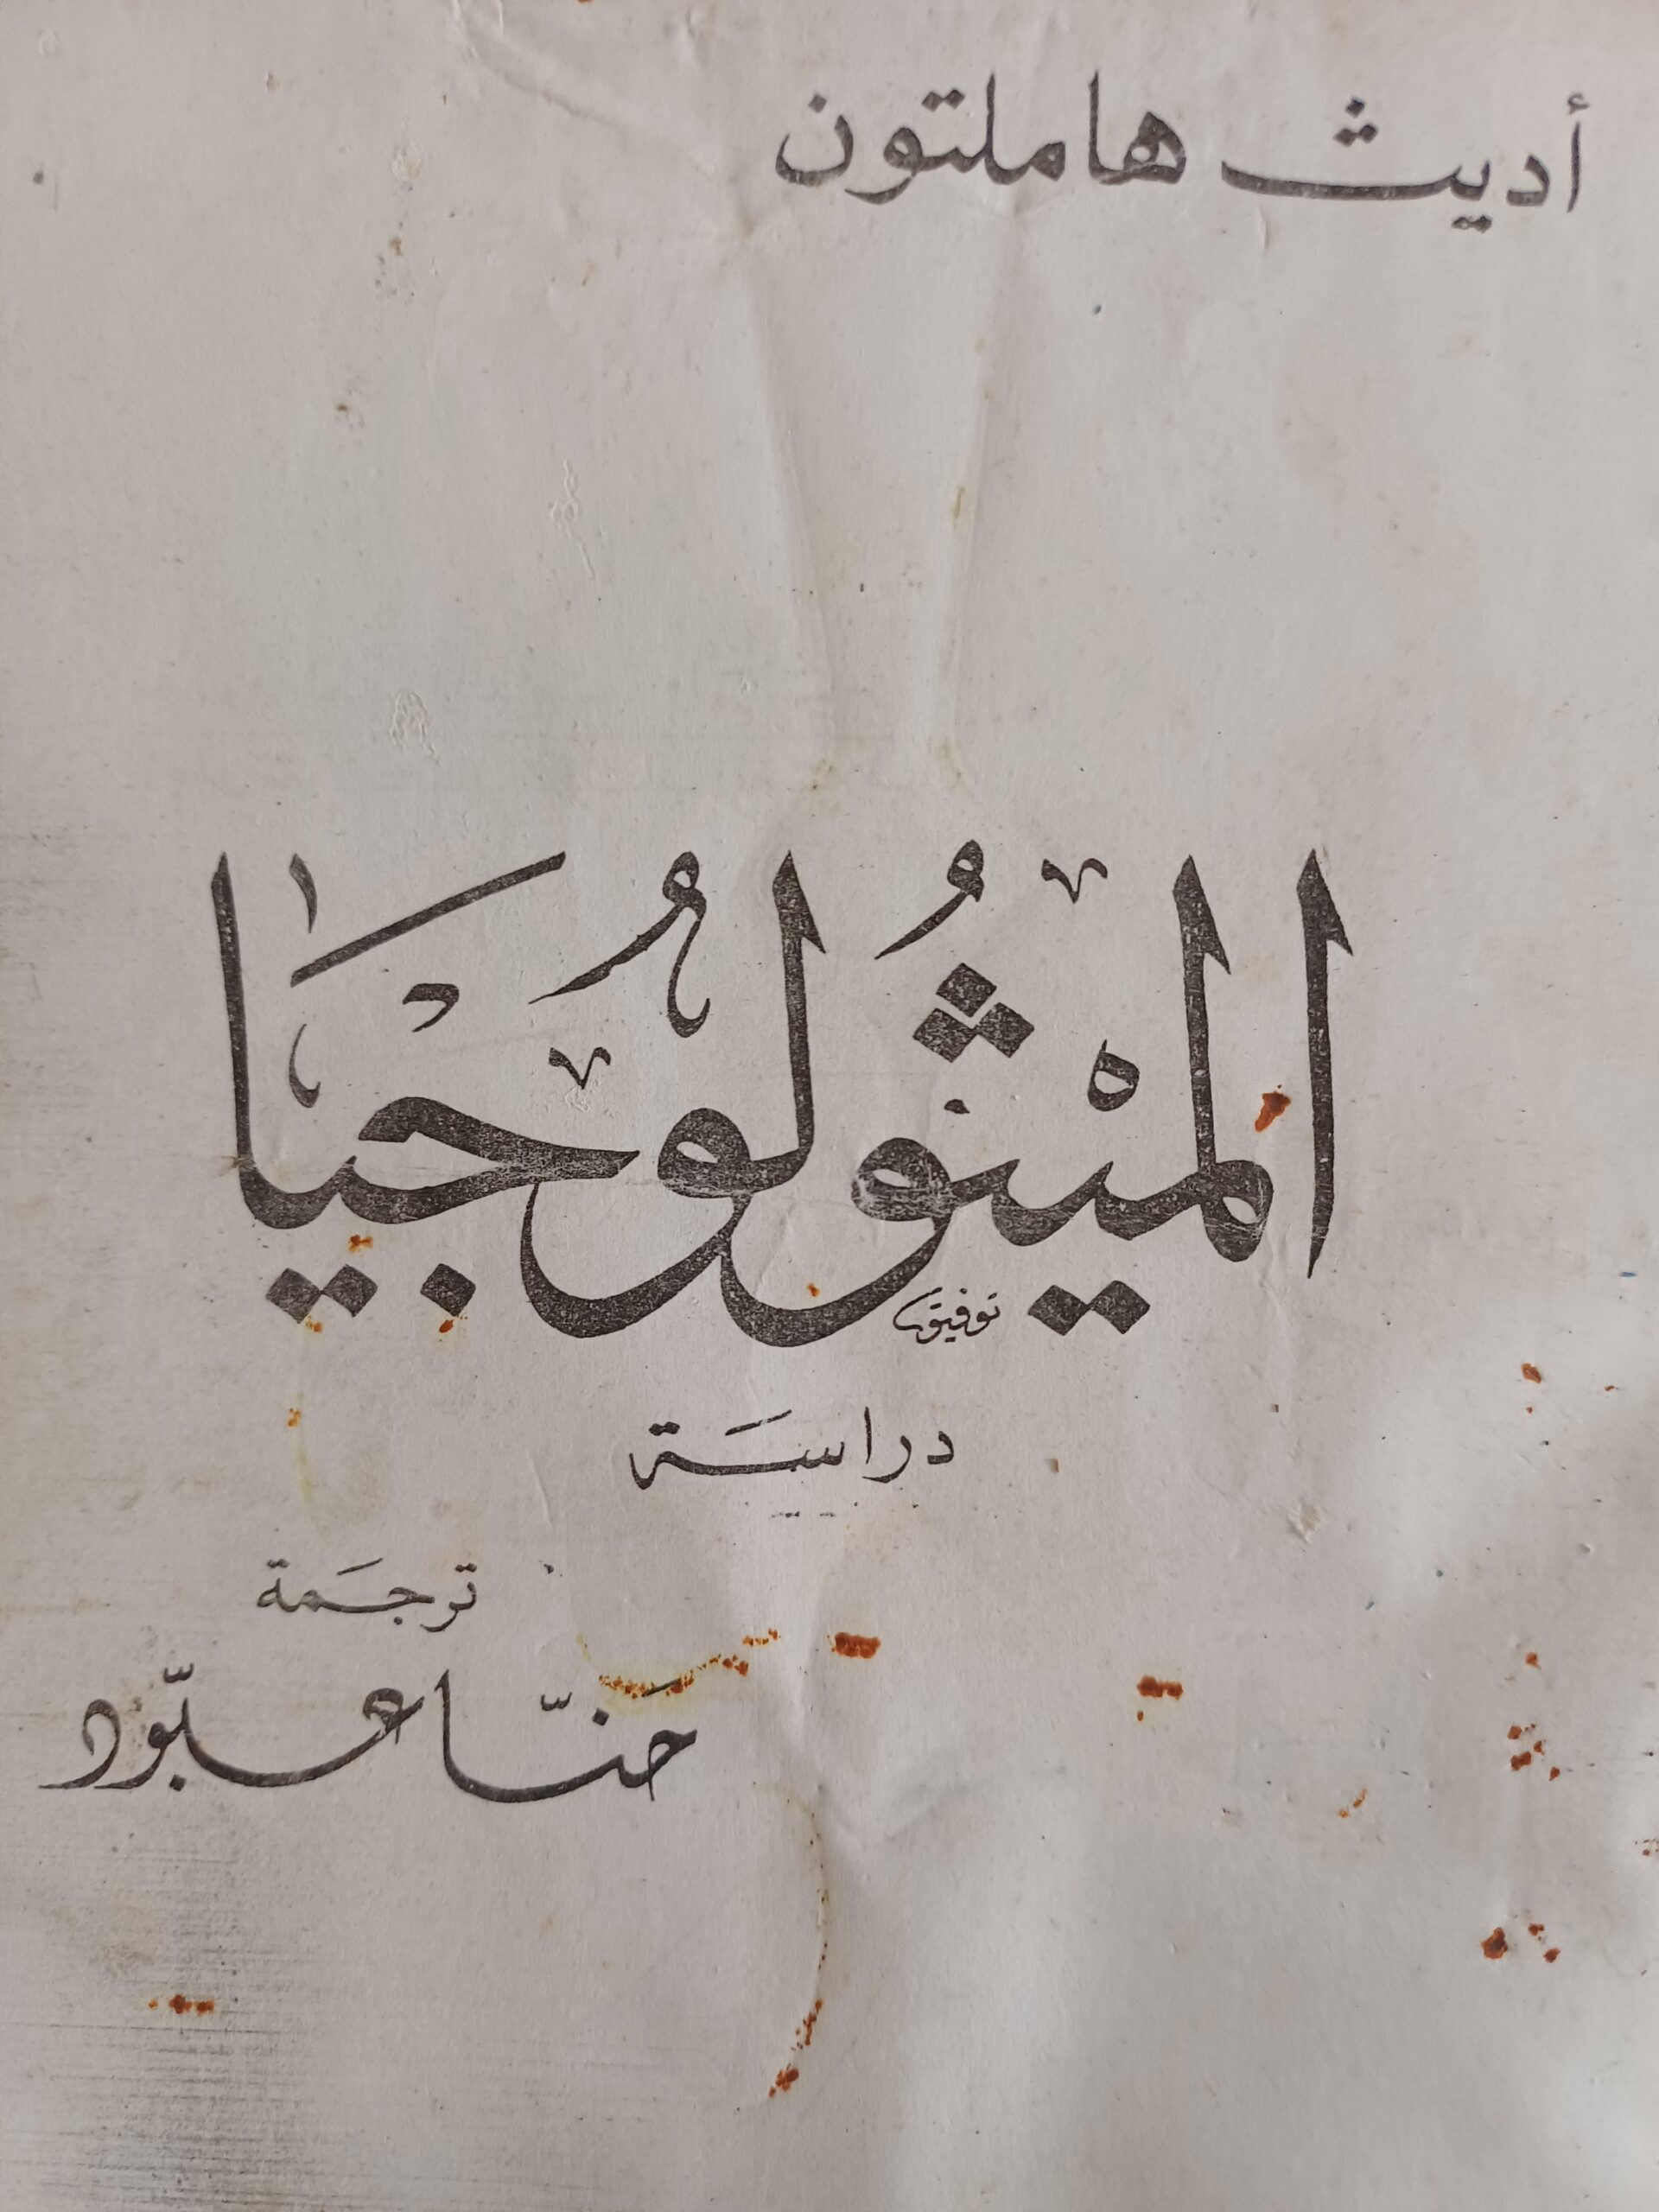 أديث هاملتون
الميْثُولُوجيَا
توفيق
دراسَة
ترجَمة
حَنّا عبّود